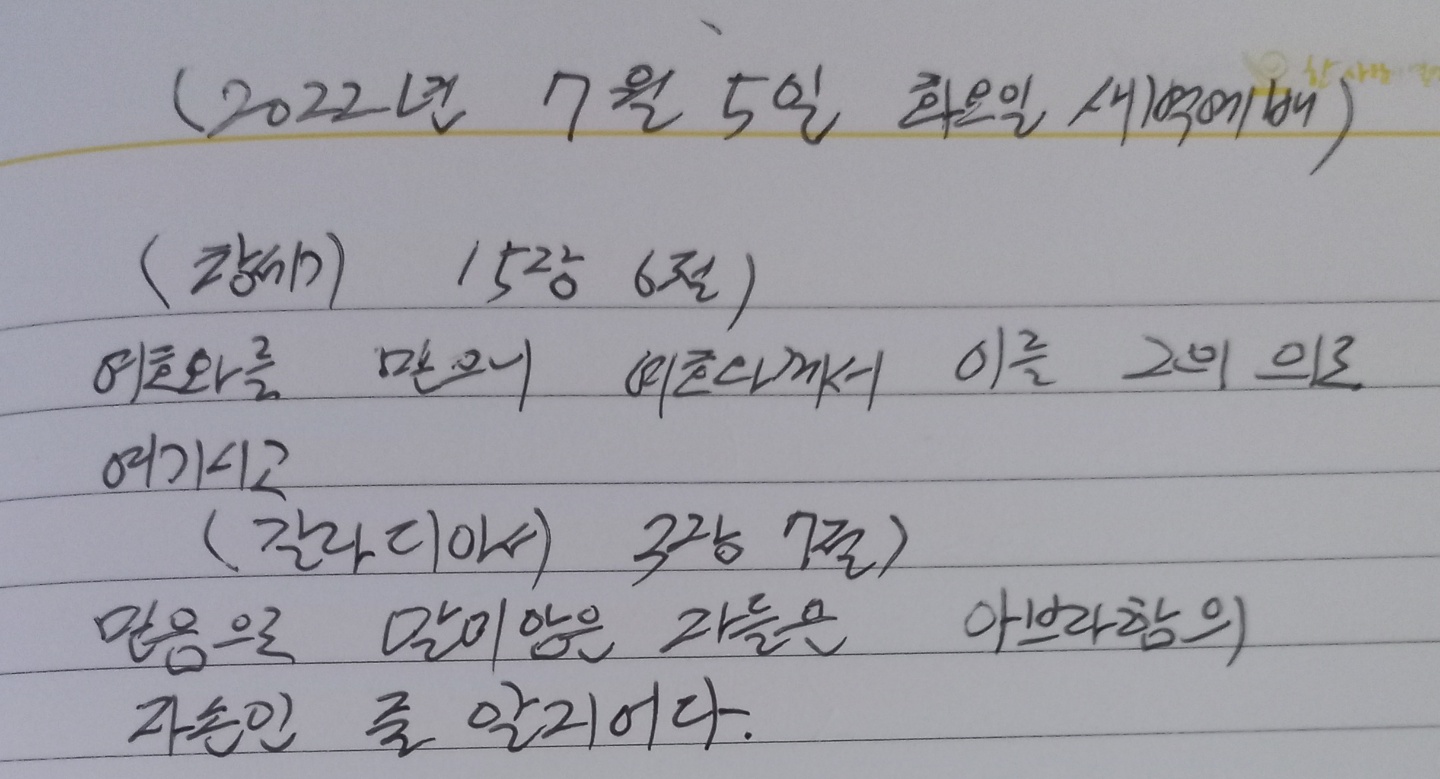 (2022년 7월 5일 화요일 새벽예배)
(창세기) 15장 6절)
여호와를 믿으니 여호와께서 이를 그의 의로
여기시고
(갈라디아서) 3장 7절)
믿음으로 말미암은 자들은 아브라함의
자손인 줄 알지어다.